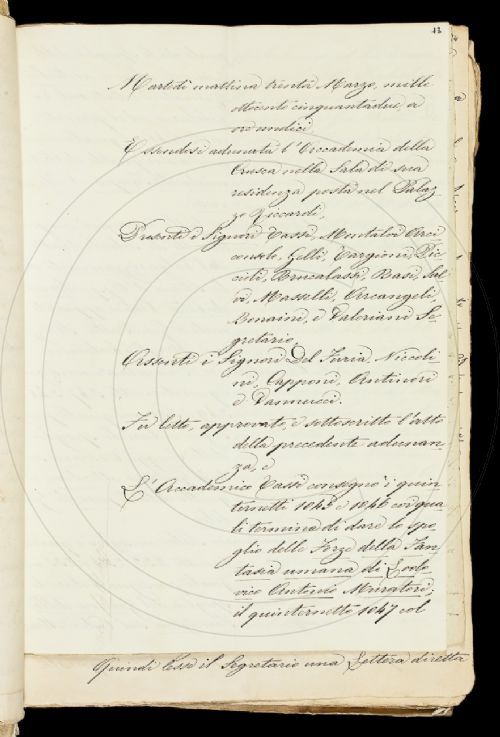 13
Martedì mattina trenta Marzo, mille
ottocento cinquantadue, a
ore undici
Essendosi adunata l'Accademia della
Crusca nella Sala di sua
residenza posta nel Palaz-
zo Riccardi,
Presenti i Signori Tassi, Montalvi Arci
consolo, Gelli, Targioni, Pic
cioli, Brucalassi, Basi, Sal
vi, Masselli, Arcangeli,
Bonaini, e Valeriani Se-
gretario,
Assenti i Signori Del Furia, Niccoli
ni, Capponi, Antinori
e Vannucci.
Fu letto, approvato, e sottoscritto l'atto
della precedente adunan-
za, e
L'Accademico Tassi consegnò i quin
ternetti 1845 e 1846 coi qua
li termina di dare lo spo
glio delle Forze della Fan-
tasia umana di Lodo
vico Antonio Muratori;
il quinternetto 1847 col
Quindi lesse il Segretario una Lettera diretta